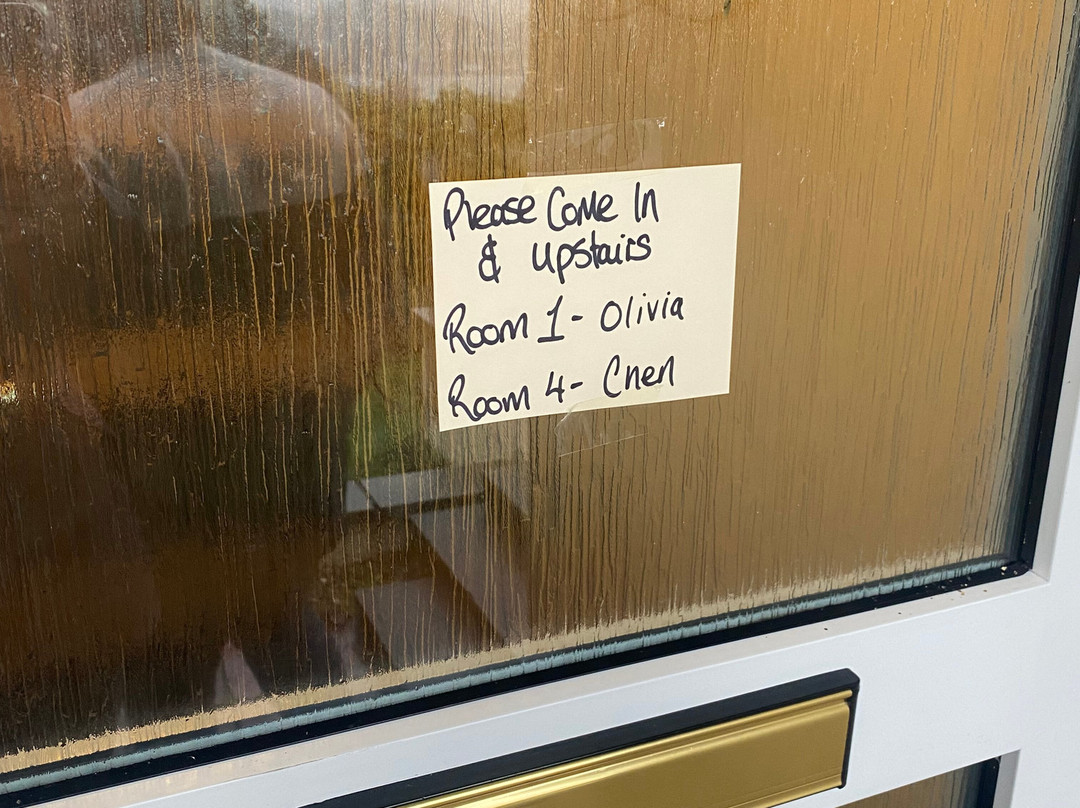 Please Come In
& Upstairs
Room 1 - Olivia
Room 4 - Cnen